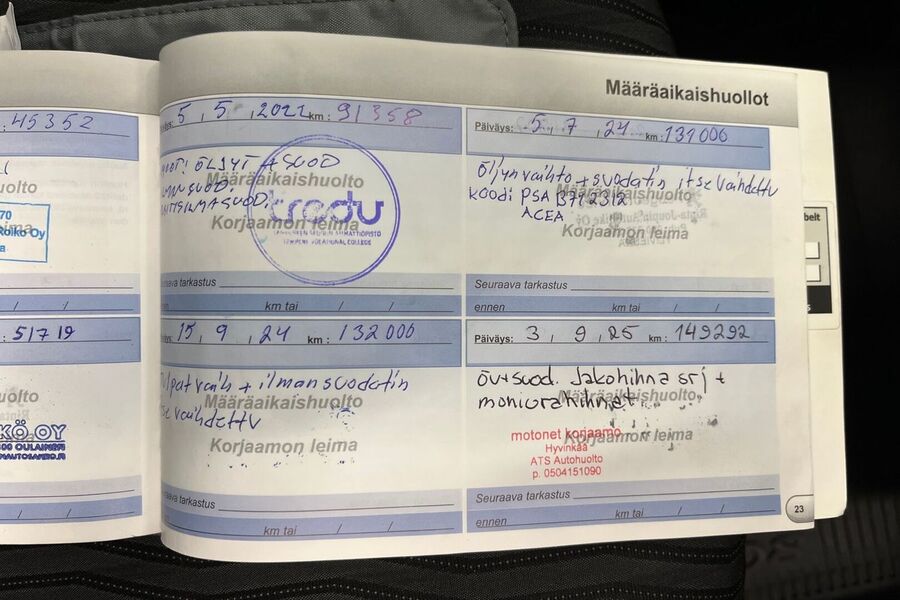 Määräaikaishuollot
: 45352
Roiko Oy
/ /
: 5/7 19
KÖ OY
OULAINEN
5 , 5 , 2022 km : 91358
Määräaikaishuolto
tradu
Korjaamon leima
Seuraava tarkastus
ennen km tai / /
Päiväys: 5 , 7 , 24 km : 131000
Öljynvaihto + suodatin itse vaihdettu
koodi PSA B712312
ACEA
Määräaikaishuolto
Korjaamon leima
Seuraava tarkastus
ennen km tai / /
15 , 9 , 24 km : 132000
Tulpat vaih + ilmansuodatin
itse vaihdettu
Määräaikaishuolto
Korjaamon leima
Seuraava tarkastus
km tai / /
Päiväys: 3 , 9 , 25 km : 149292
öv+suod. Jakohihna srj +
moniurahihnat
Määräaikaishuolto
Korjaamon leima
motonet korjaamo
Hyvinkää
ATS Autohuolto
p. 0504151090
Seuraava tarkastus
ennen km tai / /
23